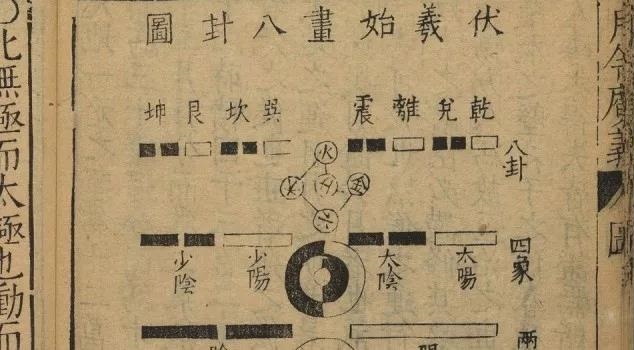 月令廣義
圖
伏羲始畫八卦圖
八卦
乾 兌 離 震 巽 坎 艮 坤
火
四象
太陽 太陰 少陽 少陰
兩
陽 陰
〇此無極而太極也動而